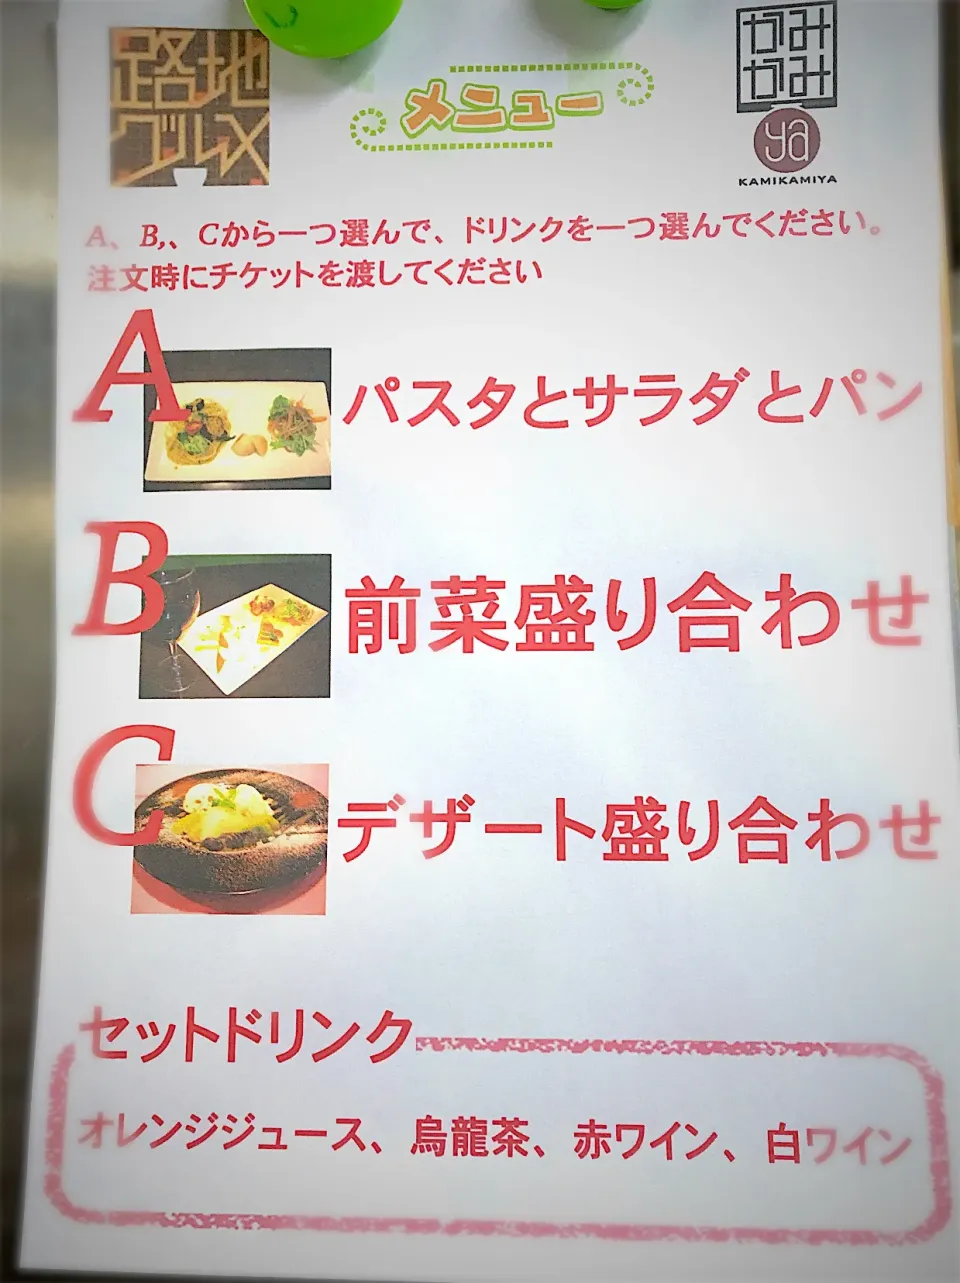 路地
グルメ
メニュー
かみ
かみ
ya
KAMIKAMIYA
A、B,、Cから一つ選んで、ドリンクを一つ選んでください。
注文時にチケットを渡してください
A
パスタとサラダとパン
B
前菜盛り合わせ
C
デザート盛り合わせ
セットドリンク
オレンジジュース、烏龍茶、赤ワイン、白ワイン